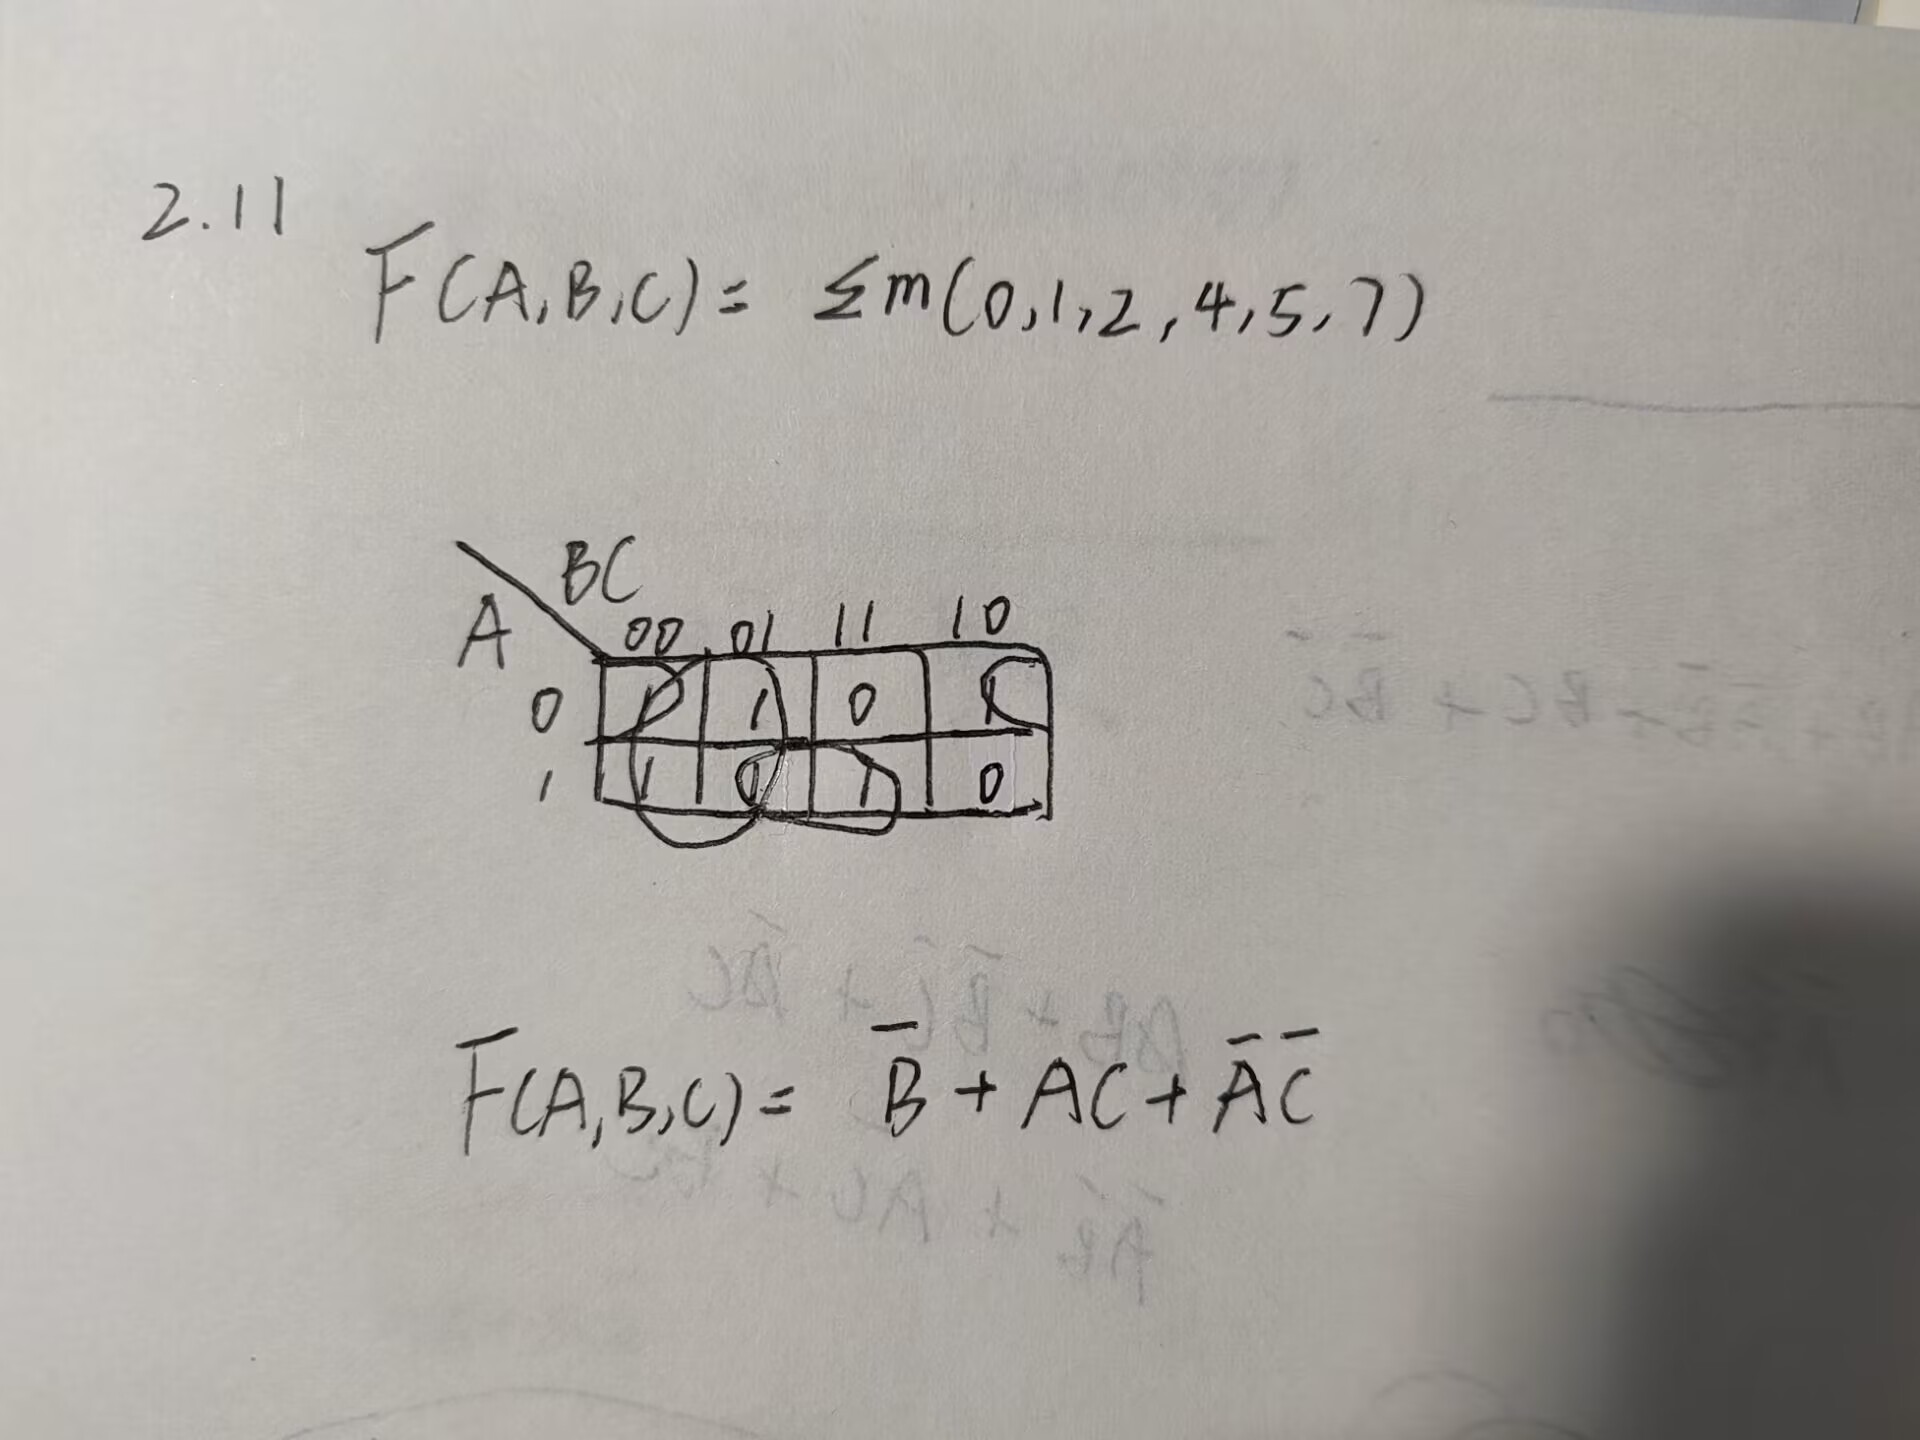 2.11
F(A,B,C)= Σm(0,1,2,4,5,7)
BC
A 00 01 11 10
0 1 1 0 1
1 1 1 1 0
F(A,B,C)= B̅ + AC + A̅ C̅